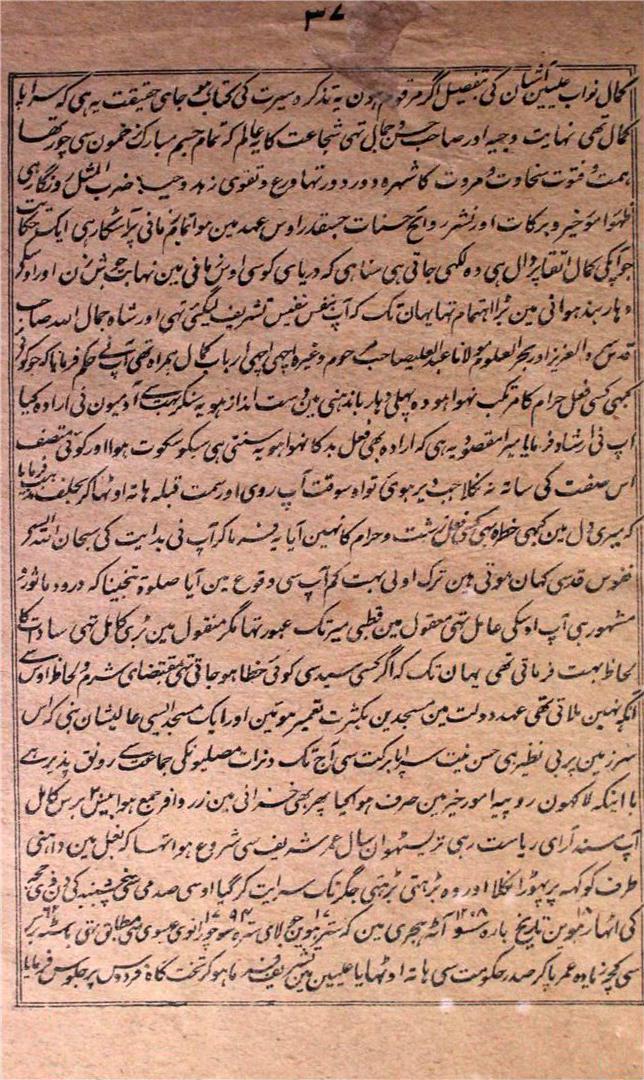 ۳۷
کمال نواب علیین آشیان کی بتفصیل اگر مرقوم ہون یہ تذکرہ سیرت کی کتاب ہو جای حقیقت یہ ہی کہ سراپا
کمال تھی نہایت وجیہ اور صاحب حسن و جمال تہی شجاعت کا یہ عالم کہ تمام جسم مبارک زخمون سی چور تھا
ہمت و فتوت سخاوت و مروت کا شہرہ دور دور تہا ورع و تقوی زہد و حیا ضرب المثل روزگار ہی
ظہور امور خیر و برکات اور نشر روایح حسنات جسقدر اوس عہد مین ہوا تمام زمانی پر آشکار ہی ایک حکایت
جو آپکی کمال اتقا پر دال ہی وہ لکہی جاتی ہی سنا ہی کہ دریای کوسی اوس زمانی مین نہایت جوش زن اور اوسکی
دہار بند ہوانی مین بڑا اہتمام تہا یہان تک کہ آپ بنفس نفیس تشریف لیگئی تہی اور شاہ جمال اللہ صاحب
قدس سرہ العزیز اور بحر العلوم مولانا عبد العلی صاحب مرحوم وغیرہ اچہی اچہی ارباب کمال ہمراہ تھی آپ نے حکم فرمایا کہ جو کوئی
کبھی کسی فعل حرام کا مرتکب نہوا ہو وہ پہلی دہار باندہنی مین دست انداز ہو یہ سنکر بہت سے آدمیون نی ارادہ کیا
آپ نی ارشاد فرمایا میرا مقصود یہ ہی کہ ارادہ بھی فعل بد کا نہوا ہو یہ سنتی ہی سبکو سکوت ہوا اور کوئی متصف
اس صفت کی ساتہ نہ نکلا جب دیر ہوئی تو اوسوقت آپ روی اور سمت قبلہ ہاتہ اوٹھا کر بحلف فرمایا
کہ میری دل مین کبھی خطرہ بھی کسی فعل زشت و حرام کا نہین آیا یہ فرما کر آپ نی ہدایت کی سبحان اللہ ایسی
نفوس قدسی کہان ہوتی ہین ترک اولی بہت کم آپ سی وقوع مین آیا صلوۃ تنجینا کہ درود ماثورہ
مشہور ہی آپ اوسکی عامل تہی معقول مین قطبی میر تک عبور تہا مگر منقول مین بڑی کامل تہی سادات کا
لحاظ بہت فرماتی تھی یہان تک کہ اگر کسی سید سی کوئی خطا ہو جاتی تہی بمقتضای شرم و لحاظ اوس سے
آنکہ نہین ملاتی تھی عہد دولت مین مسجدین بکثرت تعمیر ہوئین اور ایک مسجد ایسی عالیشان بنی کہ اس
سرزمین پر بی نظیر ہی حسن نیت سراپا برکت سی آج تک دن رات مصلیونکی جماعت سے رونق پذیر ہے
با اینکہ لاکہون روپیہ امور خیر مین صرف ہوا کیا پھر بھی خزانی مین زر وافر جمع ہوا بیس برس کامل
آپ مسند آرای ریاست رہی تریسٹھوان سال عمر شریف سی شروع ہوا تہا کہ بغل مین داہنی
طرف کو کہہ پر پہوڑا نکلا اور وہ بڑہتی بڑہتی جگر تک سرایت کر گیا اوسی صدمی سی پنجشنبہ کی دن ذی حجہ
کی اٹھارہوین تاریخ بارہ سو آٹہ ہجری مین کہ سترہوین جولای سترہ سو چورانوی عیسوی کی مطابق تہی باسٹہ برس
سی کچہہ زیادہ عمر پاکر صدر حکومت سی ہاتہ اوٹہایا علیین مین تشریف فرما ہو کر تخت گاہ فردوس پر جلوس فرمایا